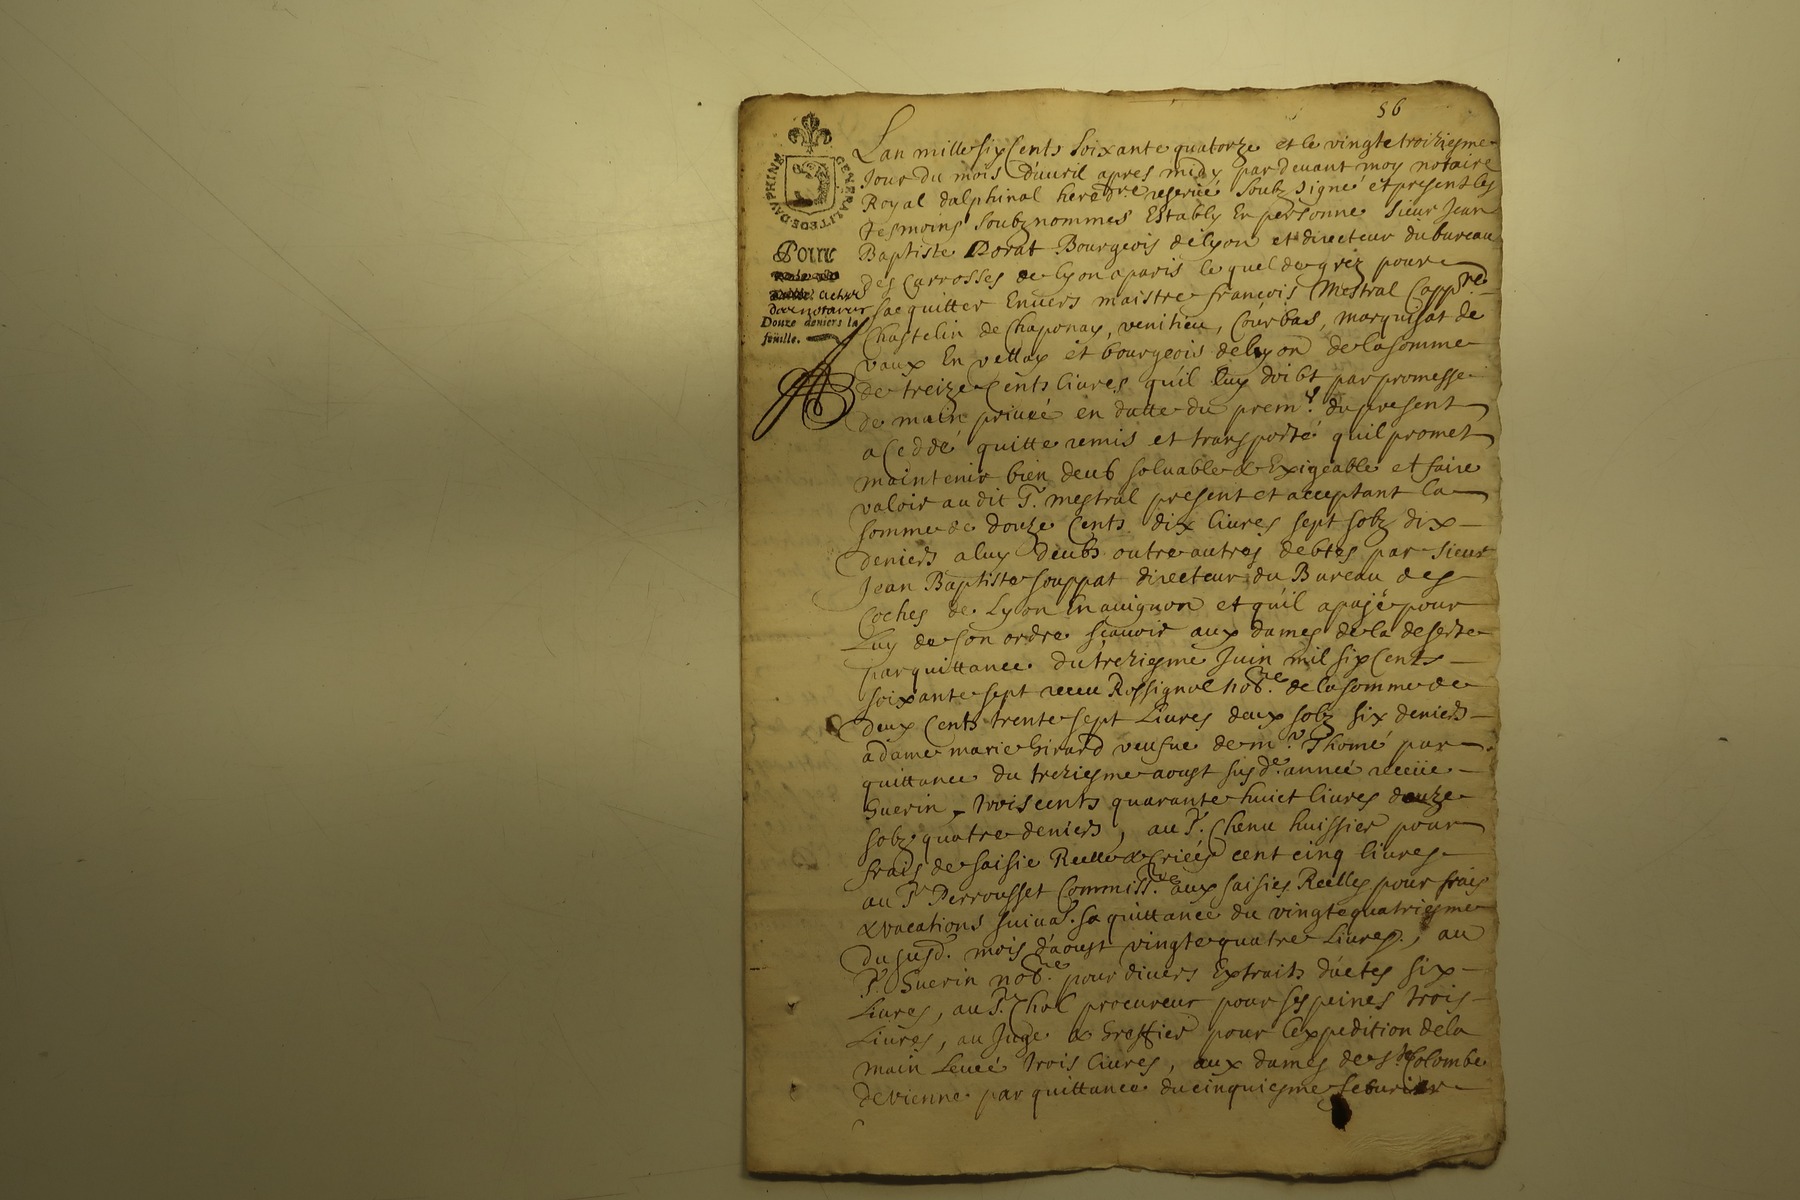 56
GENERALITE DE DAUPHINÉ
Pour
actes
de notaires
Douze deniers la
feüille.
Lan mille six Cents soixante quatorze et le vingte troiziesme
Jour du mois d'auril apres midy par deuant moy notaire
Royal dalphinal hered.re reserué soubz signé et present les
tesmoins soubz nommes Estably En personne sieur Jean
Baptiste Dorat Bourgeois de lyon et directeur du bureau
des Carrosses de lyon a paris le quel de grez pour
sacquitter Enuers maistre françois Mestral Capp.ne
Chastelin de Chaponay, venitieu, Courbas, marquisat de
vaux En vellay et bourgeois de lyon de la somme
de treize Cents liures qu'il luy doibt par promesse
de main priueé en datte du prem.r du present
a Ceddé quitte remis et transporté quil promet
maintenir bien deub soluable & Exigeable et faire
valoir au dit S.r mestral present et acceptant la
somme de douze Cents dix liures sept solz dix
deniers a luy deubs outre autres debtes par sieur
Jean Baptiste souppat directeur du Bureau des
Coches de Lyon En auignon et qu'il a payé pour
Luy de son ordre sçauoir aux dames de la deserte
par quittance du treziesme Juin mil six Cents
soixante sept receu Rossignol not.re de la somme de
deux Cents trente sept Liures deux solz six deniers
a dame marie Girard veufue de m.r Thomé par
quittance du treziesme aoust sus d.e anneé receüe
Guerin, trois cents quarante huict liures douze
solz quatre deniers, au S.r Chenu huissier pour
frais de saisie Reelle & Crieés cent cinq liures
au S.r Perrousset Commiss.re aux saisies Reelles pour frais
& vacations suiua.t sa quittance du vingte quatriesme
du susd. mois d'aoust vingte quatre Liures, au
S.r Guerin not.re pour diuers Extraits d'actes six
Liures, au S.r Chol procureur pour ses peines trois
Liures, au Juge & Greffier pour lexpedition de la
main Leueé trois liures, aux dames de s.te Colombe
de vienne par quittance du cinquiesme feburier